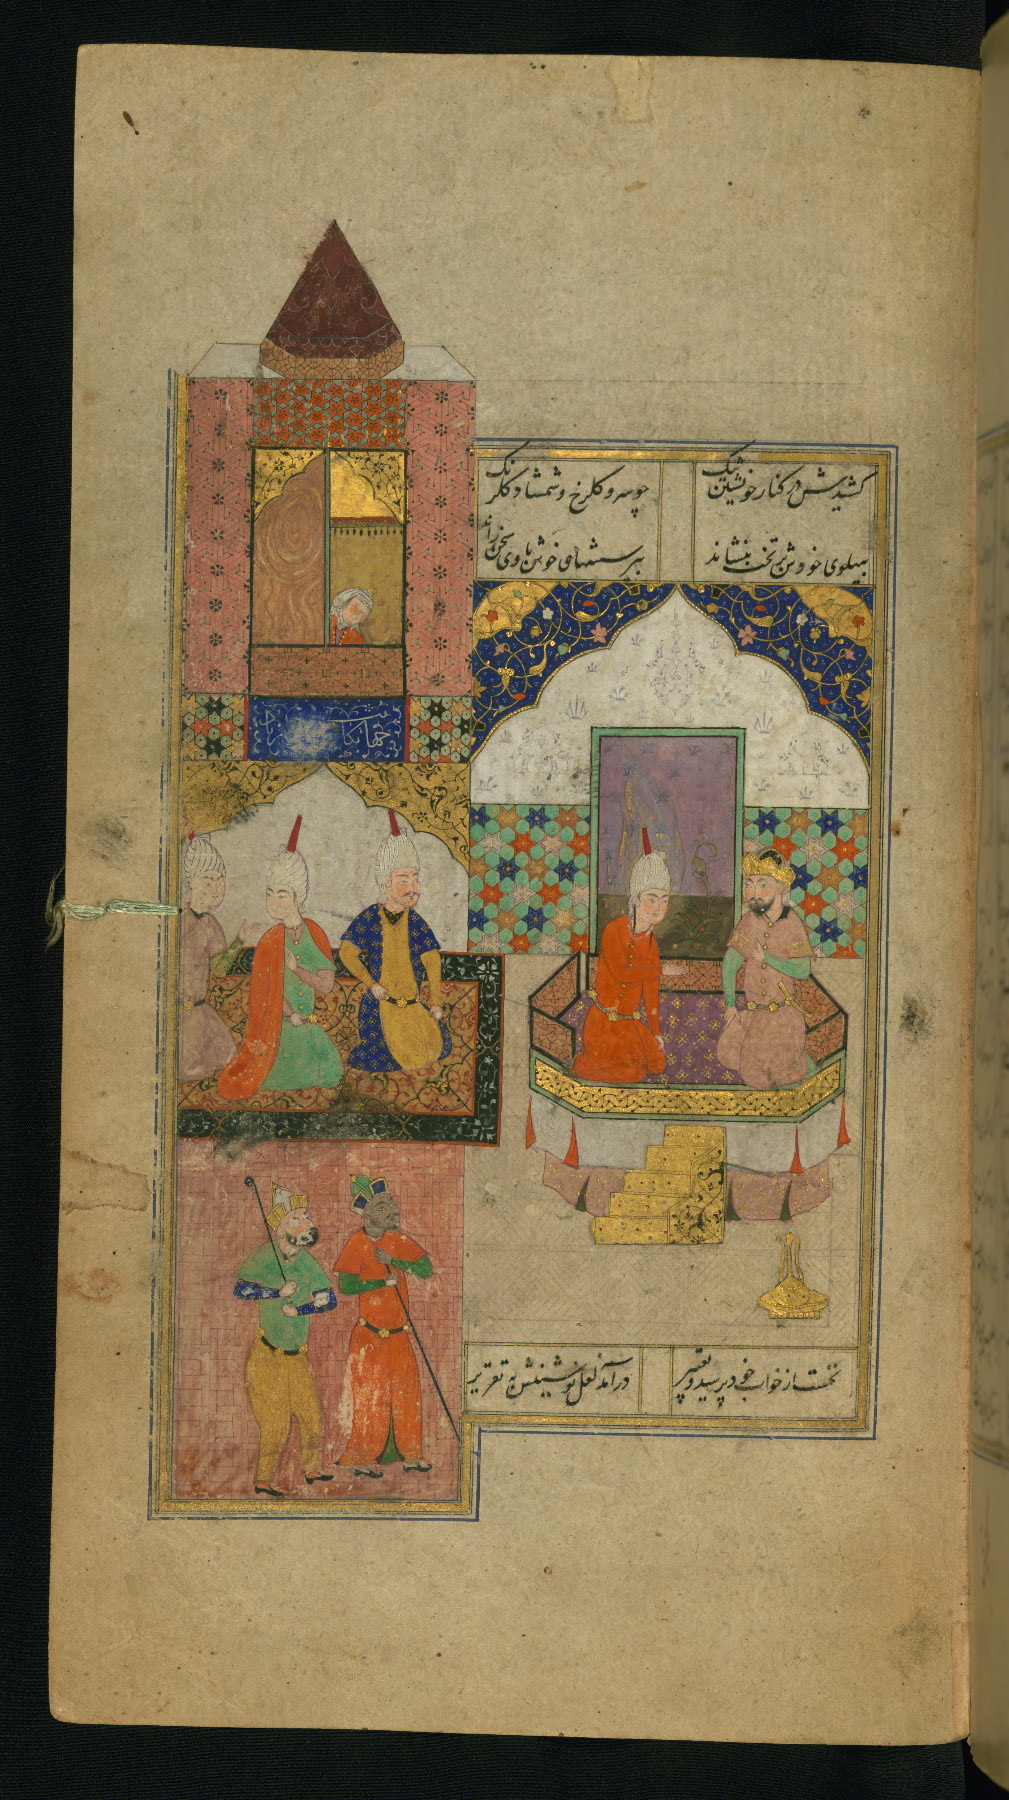 کشیدش در کنار خویشتن تنگ
چو سرو گلرخ و شمشاد گلرنگ
بپهلوی خودش بر تخت بنشاند
بپرسشهای خوش با وی سخن راند
نخست از خواب خود پرسید و تعبیر
درآمد لعل نوشینش به تقریر